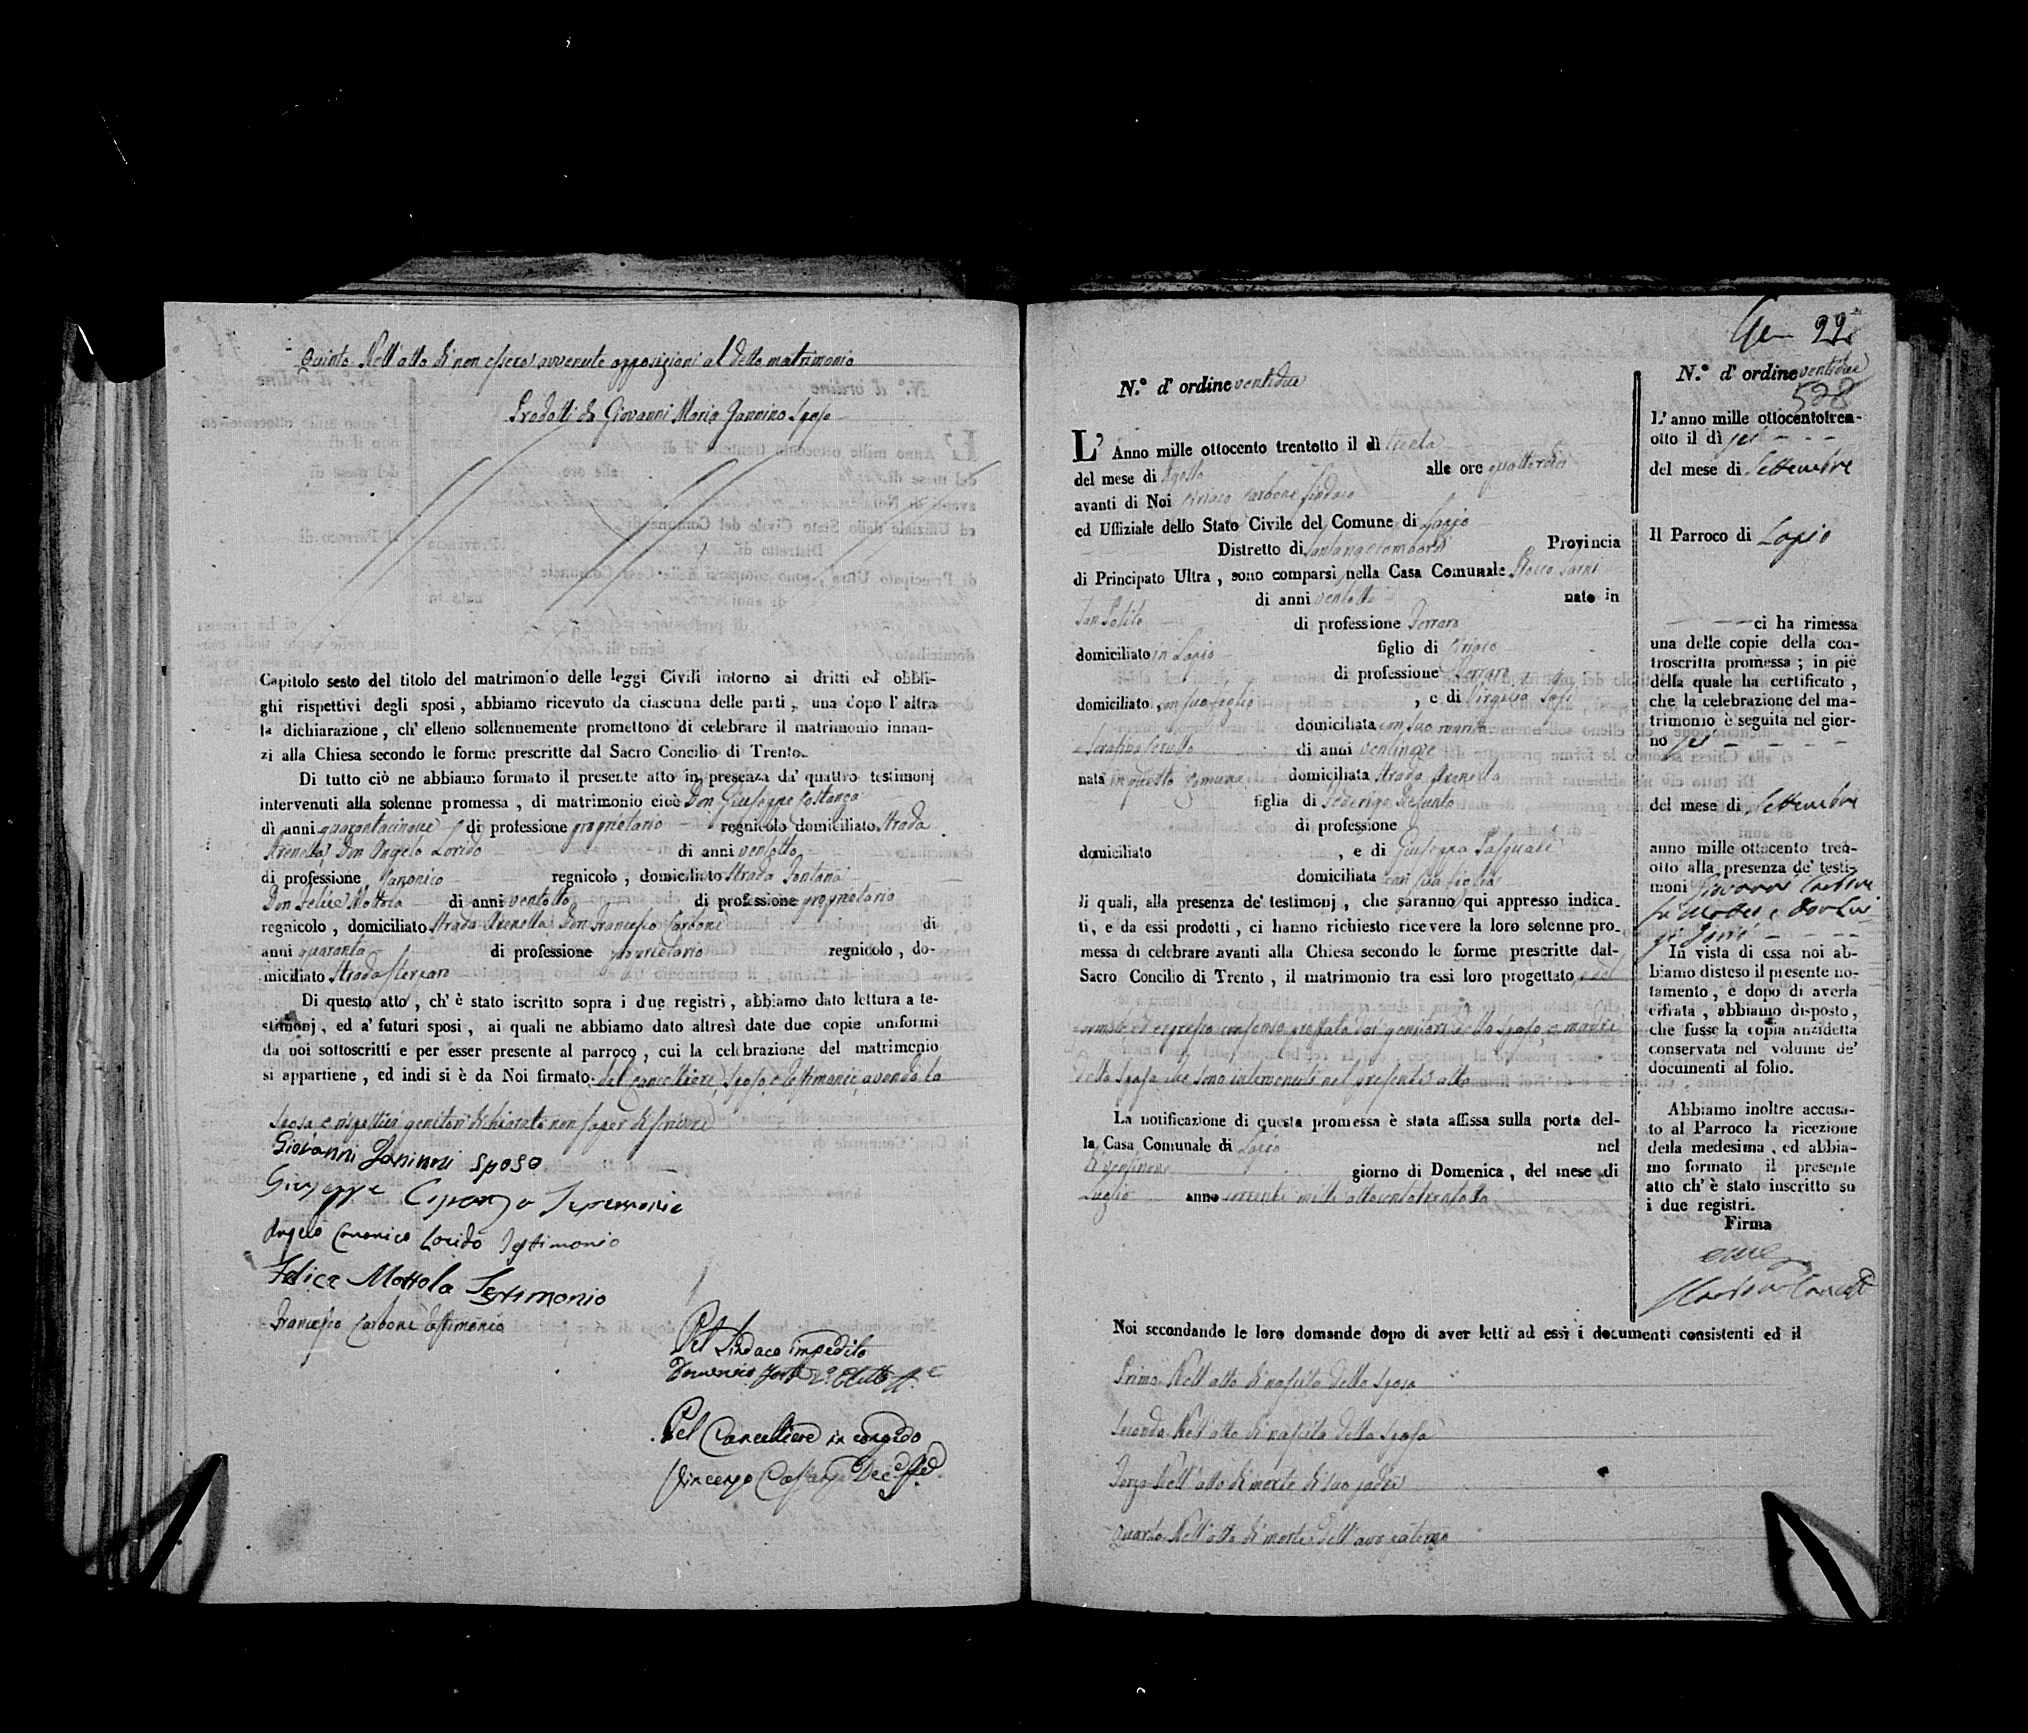 Quinto Nell'atto di non essere avvenute opposizioni al detto matrimonio
Prodotti da Giovanni Maria Jannino Sposo
Capitolo sesto del titolo del matrimonio delle leggi Civili intorno ai dritti ed obbli-
ghi rispettivi degli sposi, abbiamo ricevuto da ciascuna delle parti, una dopo l'altra
la dichiarazione, ch'elleno sollennemente promettono di celebrare il matrimonio innan-
zi alla Chiesa secondo le forme prescritte dal Sacro Concilio di Trento.
Di tutto ciò ne abbiamo formato il presente atto in presenza da' quattro testimonj
intervenuti alla solenne promessa, di matrimonio cioè Don Giuseppe Costanza
di anni quarantacinque di professione proprietario regnicolo domiciliato Strada
Arenella, Don Angelo Lorido di anni ventotto
di professione Canonico regnicolo, domiciliato Strada Fontana
Don Felice Mottola di anni ventotto di professione proprietario
regnicolo, domiciliato Strada Arenella Don Francesco Carbone di
anni quaranta di professione proprietario regnicolo, do-
miciliato Strada
Di questo atto, ch'è stato iscritto sopra i due registri, abbiamo dato lettura a te-
stimonj, ed a' futuri sposi, ai quali ne abbiamo dato altresì date due copie uniformi
da noi sottoscritti e per esser presente al parroco, cui la celebrazione del matrimonio
si appartiene, ed indi si è da Noi firmato. dal cancelliere, Sposo e testimonii, avendo la
Sposa e rispettivi genitori dichiarato non saper di scrivere
Giovanni Janinni sposo
Giuseppe Testimonio
Angelo Canonico Lorido Testimonio
Felice Mottola Testimonio
Francesco Carbone testimonio
Pel Sindaco impedito
Domenico 2° Eletto
Pel Cancelliere in congedo
Vincenzo
22
N.° d'ordine ventidue
L'Anno mille ottocento trentotto il dì trenta
del mese di Agosto alle ore quattordici
avanti di Noi Ciriaco Carbone Sindaco
ed Uffiziale dello Stato Civile del Comune di Lapio
Distretto di Santangelo Lombardi Provincia
di Principato Ultra, sono comparsi nella Casa Comunale Rocco
di anni ventotto nato in
San Potito di professione Ferraro
domiciliato in Lapio figlio di Ciriaco
di professione Ferraro
domiciliato con suo figlio, e di Virginia
domiciliata con suo marito
Serafina di anni venticinque
nata in questo Comune domiciliata Strada Arenella
figlia di Federigo Defunto
di professione
domiciliato, e di Giuseppa Pasquale
domiciliata con sua figlia
li quali, alla presenza de' testimonj, che saranno qui appresso indica-
ti, e da essi prodotti, ci hanno richiesto ricevere la loro solenne pro-
messa di celebrare avanti alla Chiesa secondo le forme prescritte dal
Sacro Concilio di Trento, il matrimonio tra essi loro progettato, e col
formale ed espresso consenso prestato dai genitori dello Sposo, e madre
della Sposa che sono intervenuti nel presente atto
La notificazione di questa promessa è stata affissa sulla porta del-
la Casa Comunale di Lapio nel
dì ventinove giorno di Domenica, del mese di
Luglio anno corrente mille ottocentotrentotto
Noi secondando le loro domande dopo di aver letti ad essi i documenti consistenti ed il
Primo Nell'atto di nascita dello Sposo
Secondo Nell'atto di nascita della Sposa
Terzo Nell'atto di morte di suo padre
Quarto Nell'atto di morte dell'avo paterno
N.° d'ordine ventidue
528
L'anno mille ottocentotren-
otto il dì sei
del mese di Settembre
Il Parroco di Lapio
ci ha rimessa
una delle copie della con-
troscritta promessa; in piè
della quale ha certificato,
che la celebrazione del ma-
trimonio è seguita nel gior-
no sei
del mese di Settembre
anno mille ottocento tren-
otto alla presenza de' testi-
moni Giovanni Carbone
In vista di essa noi ab-
biamo disteso il presente no-
tamento, e dopo di averla
cifrata, abbiamo disposto,
che fusse la copia anzidetta
conservata nel volume de'
documenti al folio.
Abbiamo inoltre accusa-
to al Parroco la ricezione
della medesima, ed abbia-
mo formato il presente
atto ch'è stato inscritto su
i due registri.
Firma